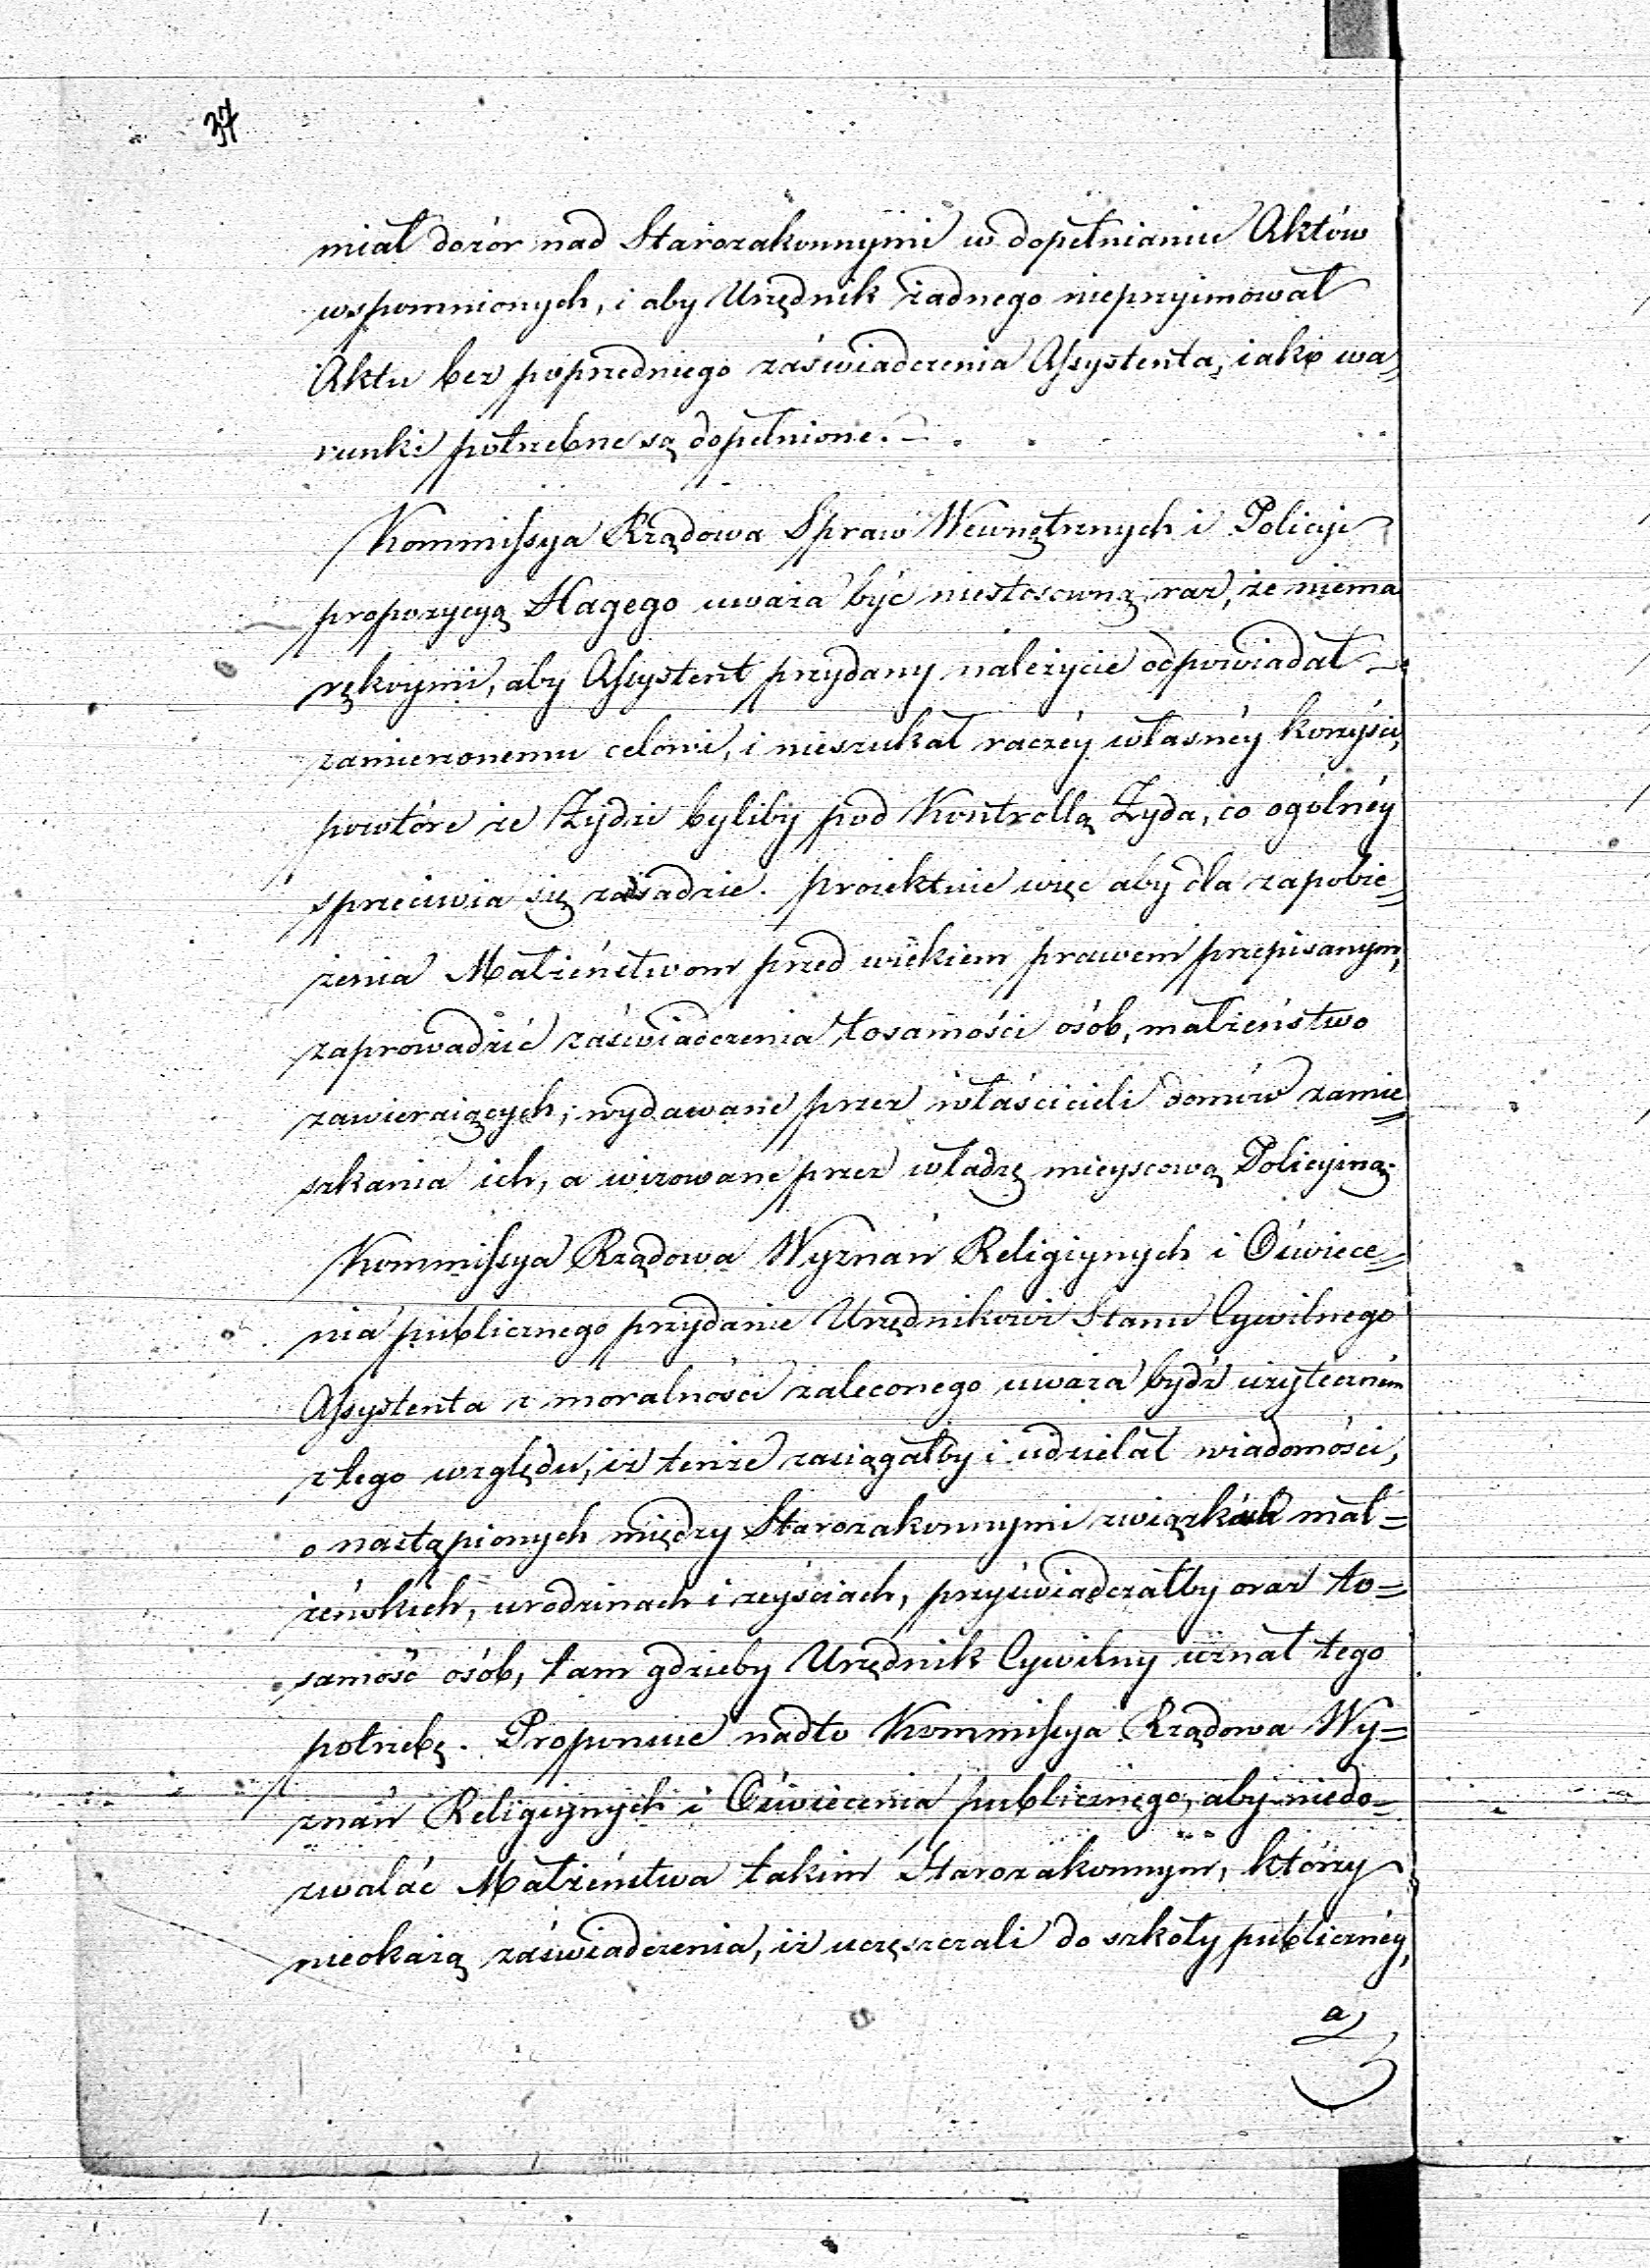 37
miał dozór nad Starozakonnymi w dopełnianiu Aktów
wspomnionych, i aby Urzędnik żadnego nieprzyimował
Aktu bez poprzedniego zaświadczenia Assystenta, iako wa„
runki potrzebne są dopełnione. –
Kommissya Rządowa Spraw Wewnętrznych i Policyi
propozycyą Hagego uważa być niestosowną, raz, że niema
rękoymi, aby Assystent przydany należycie odpowiadał
zamierzonemu celowi, i nieszukał raczéy własnéy korzyści,
powtóre że Żydzi byliby pod Kontrollą Żyda, co ogólnéy
sprzeciwia się zasadzie. proiektuie więc aby dla zapobie„
żenia Małżeństwom przed wiekiem prawem przepisanym,
zaprowadzić zaświadczenia tosamości osób, małżeństwo
zawieraiących, wydawane przez właścicieli domów zamie„
szkania ich, a wizowane przez władzę mieyscową Policyiną.
Kommissya Rządowa Wyznań Religiynych i Oświece„
nia publicznego przydanie Urzędnikowi Stanu Cywilnego
Assystenta z moralności zaleconego uważa bydź użyteczném
z tego względu, iż tenże zasiągałby i udzielał wiadomości,
o nastąpionych między Starozakonnymi związkach mał=
żeńskich, urodzinach i zeyściach, przyświadczałby oraz to=
samość osób, tam gdzieby Urzędnik Cywilny uznał tego
potrzebę. Proponuie nadto Kommissya Rządowa Wy=
znań Religiynych i Oświecenia publicznego, aby niedo=
zwalać Małżeństwa takim Starozakonnym, którzy
nieokażą zaświadczenia, iż uczęszczali do szkoły publicznéy,
a